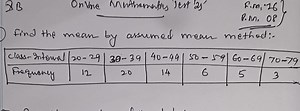 Online Mathematics Test 25
R.no. 26
R.no. 08
Find the mean by assumed mean method:-
Class-Interval 20-29 30-39 40-49 50-59 60-69 70-79
Frequency 12 20 14 6 5 3